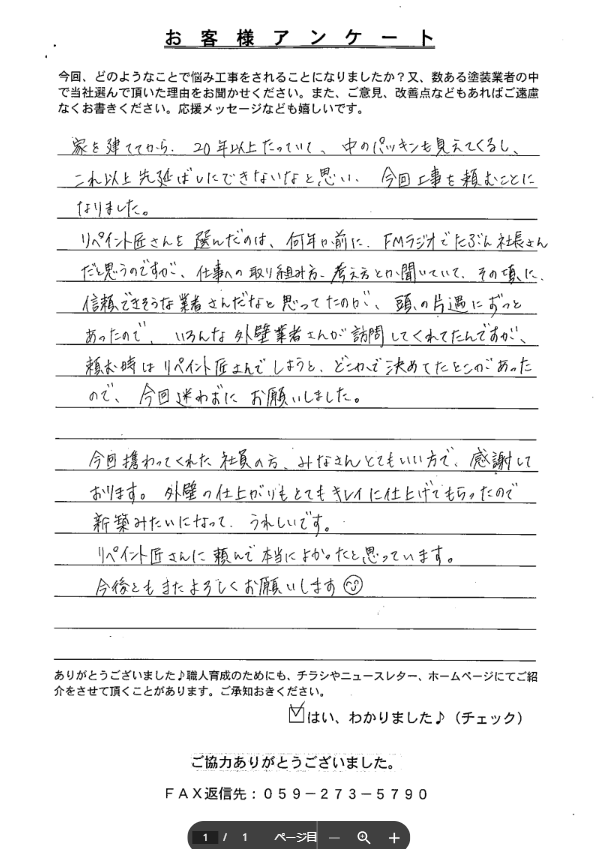 お客様アンケート
今回、どのようなことで悩み工事をされることになりましたか?又、数ある塗装業者の中
で当社選んで頂いた理由をお聞かせください。また、ご意見、改善点などもあればご遠慮
なくお書きください。応援メッセージなども嬉しいです。
家を建ててから、20年以上たっていて、中のパッキンも見えてくるし、
これ以上先延ばしにできないなと思い、今回工事を頼むことに
なりました。
リペイント匠さんを選んだのは、何年か前に、FMラジオでたぶん社長さん
だと思うのですが、仕事への取り組み方、考え方とか聞いていて、その頃に、
信頼できそうな業者さんだなと思ってたのが、頭の片遇にずっと
あったので、いろんな外壁業者さんが訪問してくれてたんですが、
頼む時はリペイント匠さんでしようと、どこかで決めてたところがあった
ので、今回迷わずに お願いしました。
今回携わってくれた社員の方、みなさんとてもいい方で、感謝して
おります。外壁の仕上がりもとてもキレイに仕上げてもらったので
新築みたいになって、うれしいです。
リペイント匠さんに頼んで本当によかったと思っています。
今後ともまたよろしくお願いします☺
ありがとうございました♪職人育成のためにも、チラシやニュースレター、ホームページにてご紹
介をさせて頂くことがあります。ご承知おきください。
☑はい、わかりました♪(チェック)
ご協力ありがとうございました。
FAX返信先:059-273-5790
1 / 1 ページ目 − +